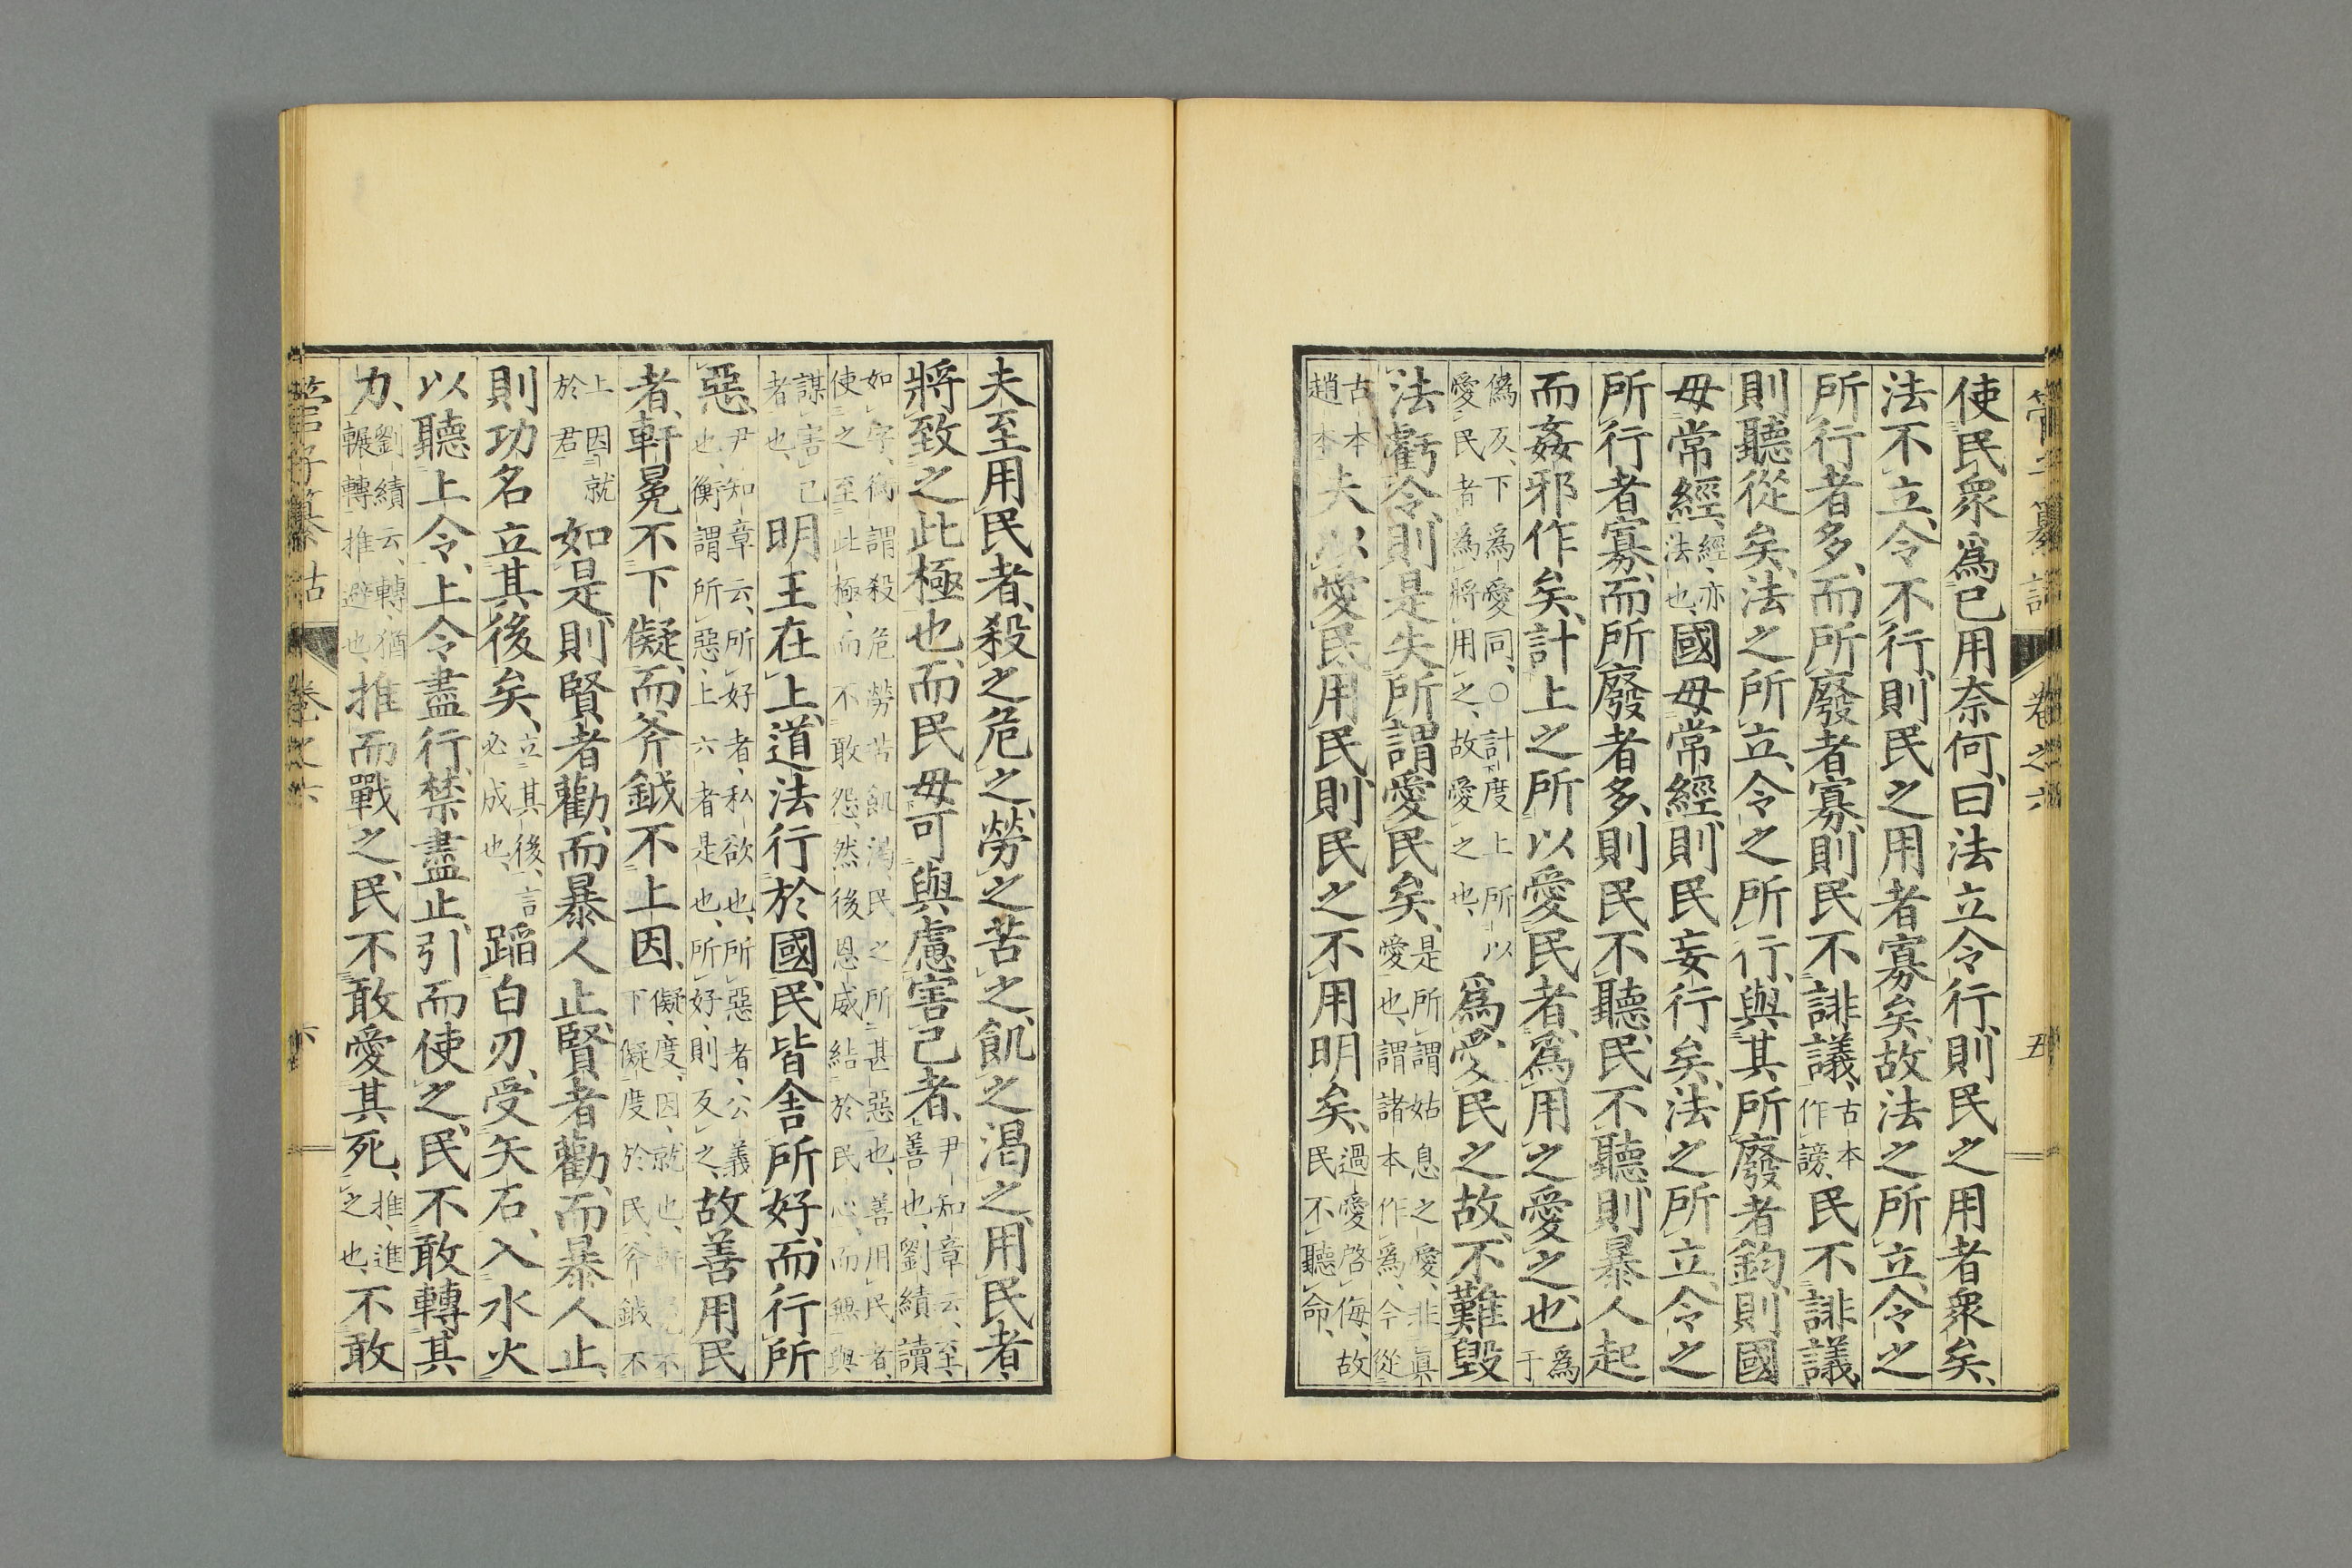 使民衆爲己用奈何、曰法立令行、則民之用者衆矣、
法不立、令不行、則民之用者寡矣、故法之所立、令之
所行者多、而所廢者寡、則民不誹議、古本作謗、民不誹議
則聽從矣、法之所立、令之所行、與其所廢者鈞、則國
毋常經、經、亦法也、國毋常經、則民妄行矣、法之所立、令之
所行者寡、而所廢者多、則民不聽、民不聽、則暴人起
而姦邪作矣、計上之所以愛民者、爲用之愛之也、爲于
僞反、下爲愛同、○計度上所以愛民者、爲將用之、故愛之也、爲愛民之故、不難毀
法虧令、則是失所謂愛民矣、是所謂姑息之愛、非眞愛也、謂諸本作爲、今從
古本趙本夫以愛民用民、則民之不用明矣、過愛啓侮、故民不聽命、
管子纂詁 卷之六 五
夫至用民者、殺之危之、勞之苦之、飢之渴之、用民者、
將致之此極也、而民毋可與慮害己者、尹知章云、至、善也、劉績讀
如字、衡謂殺危勞苦飢渴、民之所甚惡也、善用民者、使之至此極、而不敢怨、然後恩威結於民心、而無與
謀害己者也、明王在上、道法行於國、民皆舍所好、而行所
惡、尹知章云、所好者、私欲也、所惡者、公義也、衡謂所惡、上六者是也、所好、則反之、故善用民
者、軒冕不下儗、而斧鉞不上因、儗、度、因、就也、軒冕不下儗度於民、斧鉞不
上因就於君如是、則賢者勸、而暴人止、賢者勸、而暴人止、
則功名立其後矣、立其後、言必成也、蹈白刃、受矢石、入水火
以聽上令、上令盡行、禁盡止、引而使之、民不敢轉其
力、劉績云、轉、猶輾轉推避也、推而戰之、民不敢愛其死、推、進之也、不敢
管子纂詁 卷之六 六